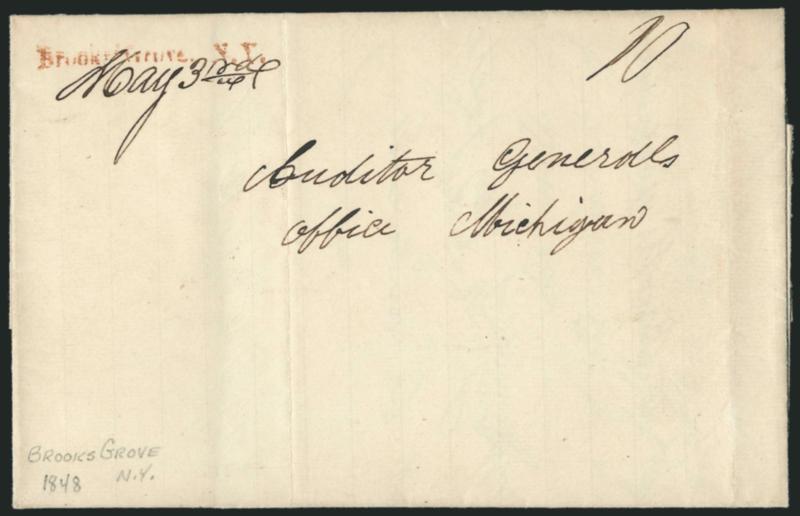 Brooks Grove, N.Y.
10
May 3rd
Auditor Generals
Office Michigan
Brooks Grove
1848 N.Y.